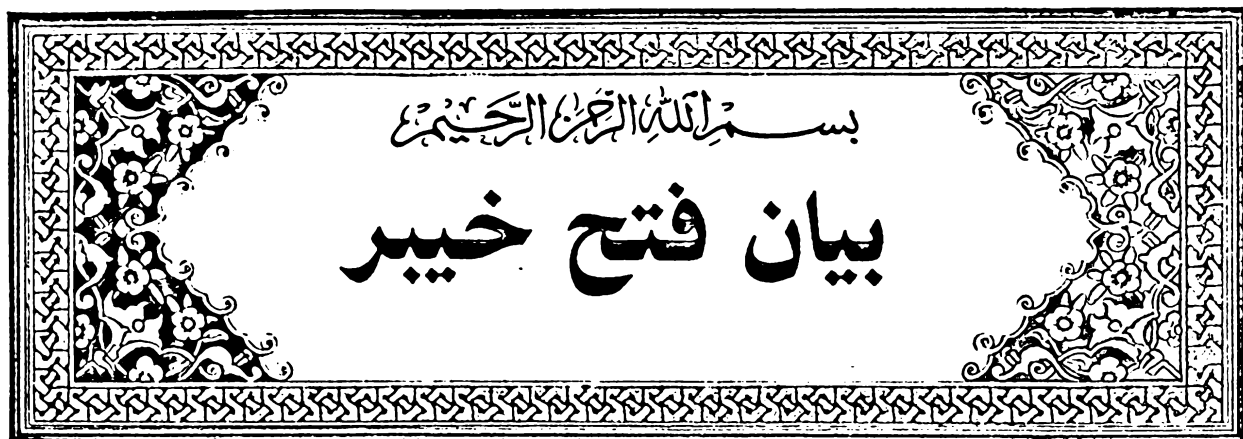 بسم الله الرحمن الرحيم
بيان فتح خيبر